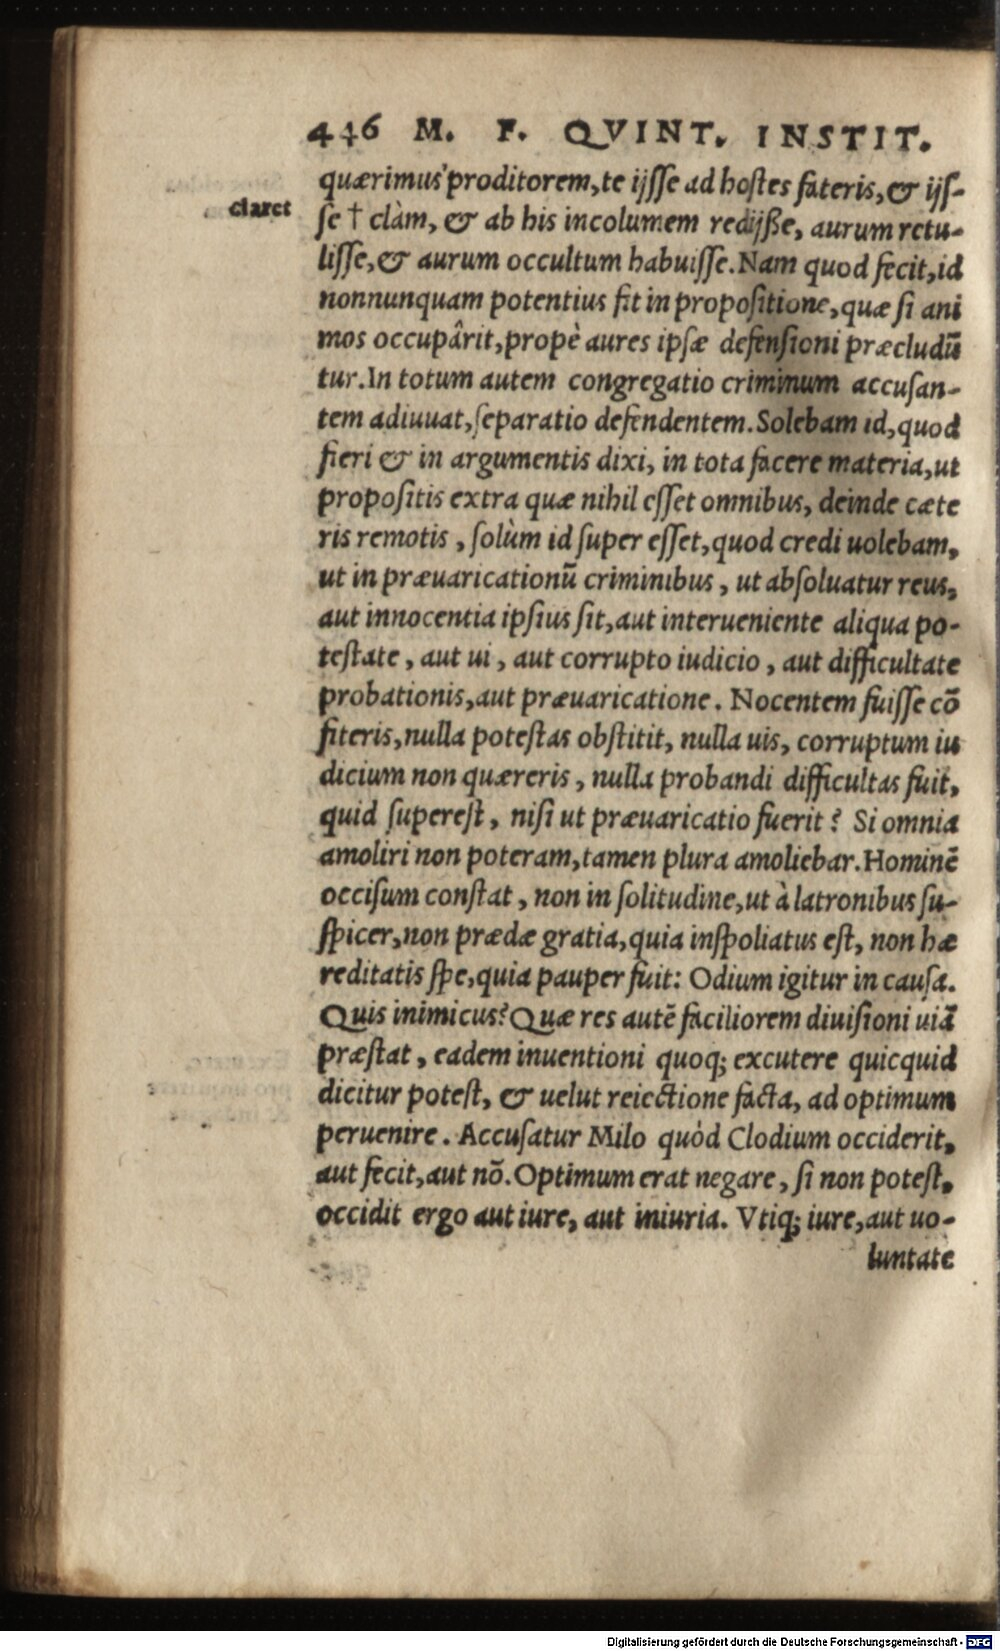 446 M. F. QVINT. INSTIT.
quærimus proditorem,te ijsse ad hostes fateris,& ijs-
claret
se † clàm, & ab his incolumem redijße, aurum retu-
lisse,& aurum occultum habuisse.Nam quod fecit,id
nonnunquam potentius fit in propositione,quæ si ani
mos occupârit,propè aures ipsæ defensioni præcludũ
tur.In totum autem congregatio criminum accusan-
tem adiuuat,separatio defendentem.Solebam id,quod
fieri & in argumentis dixi, in tota facere materia,ut
propositis extra quæ nihil esset omnibus, deinde cæte
ris remotis , solùm id super esset,quod credi uolebam,
ut in præuaricationũ criminibus , ut absoluatur reus,
aut innocentia ipsius sit,aut interueniente aliqua po-
testate , aut ui , aut corrupto iudicio , aut difficultate
probationis,aut præuaricatione . Nocentem fuisse cõ
fiteris,nulla potestas obstitit, nulla uis, corruptum iu
dicium non quæreris , nulla probandi difficultas fuit,
quid superest , nisi ut præuaricatio fuerit ? Si omnia
amoliri non poteram,tamen plura amoliebar.Hominẽ
occisum constat , non in solitudine,ut à latronibus su-
spicer,non prædæ gratia,quia inspoliatus est, non hæ
reditatis spe,quia pauper fuit: Odium igitur in causa.
Quis inimicus?Quæ res autẽ faciliorem diuisioni uiã
præstat , eadem inuentioni quoq; excutere quicquid
dicitur potest, & uelut reiectione facta, ad optimum
peruenire . Accusatur Milo quòd Clodium occiderit,
aut fecit,aut nõ.Optimum erat negare , si non potest,
occidit ergo aut iure, aut iniuria. Vtiq; iure,aut uo-
luntate
Digitalisierung gefördert durch die Deutsche Forschungsgemeinschaft - DFG